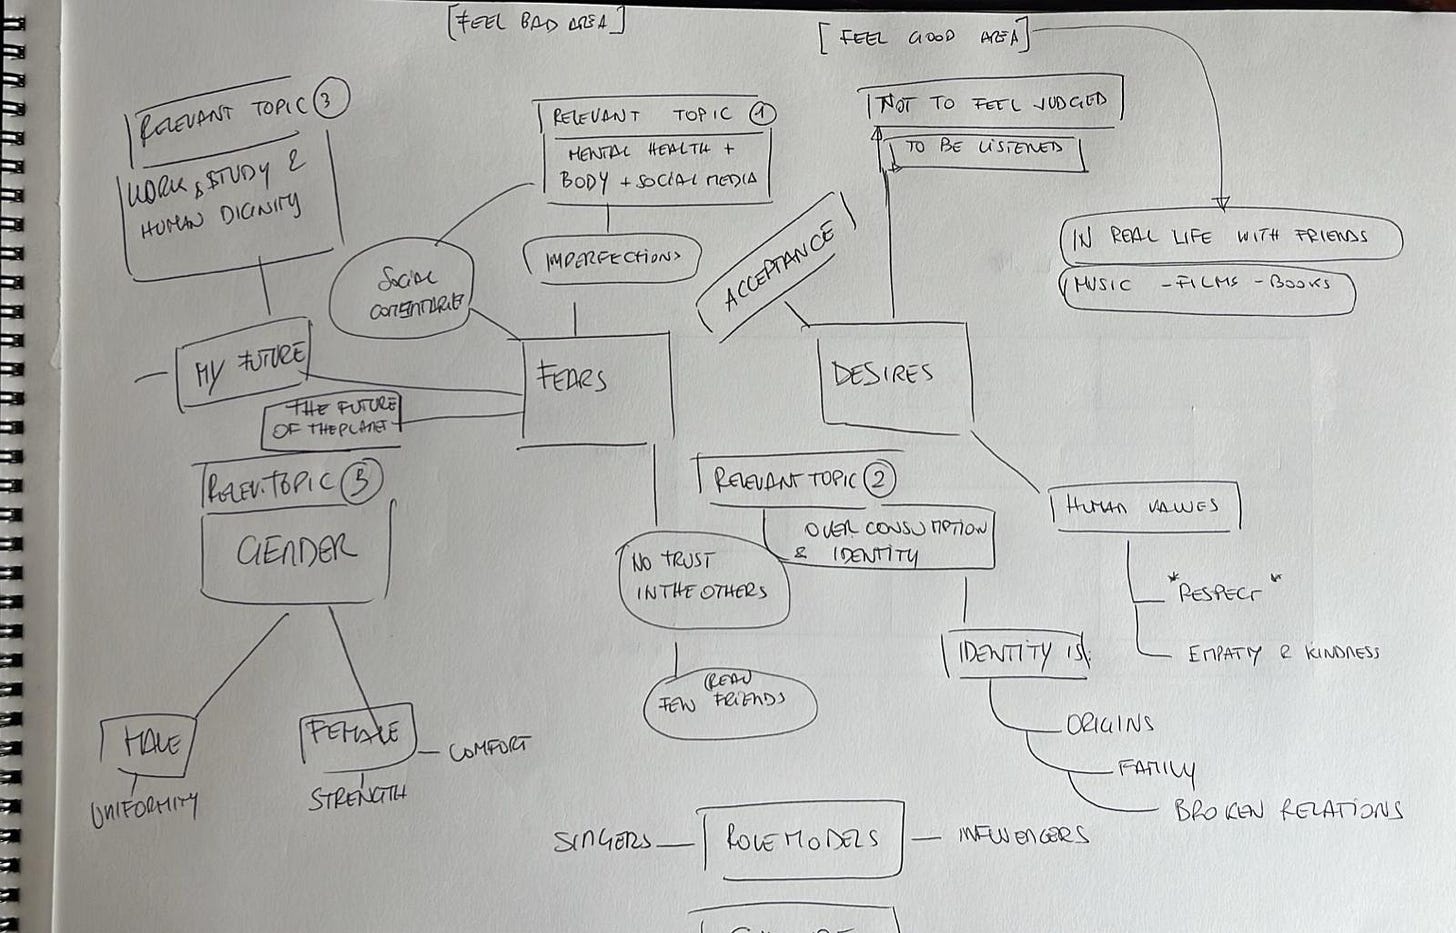 [FEEL BAD AREA]
[FEEL GOOD AREA]
RELEVANT TOPIC 3
WORK & STUDY &
HUMAN DIGNITY
RELEVANT TOPIC 1
MENTAL HEALTH +
BODY + SOCIAL MEDIA
NOT TO FEEL JUDGED
TO BE LISTENED
IN REAL LIFE WITH FRIENDS
MUSIC - FILMS - BOOKS
SOCIAL
IMPERFECTIONS
ACCEPTANCE
MY FUTURE
THE FUTURE
OF THE PLANET
FEARS
DESIRES
RELEV. TOPIC 3
GENDER
MALE
UNIFORMITY
FEMALE
COMFORT
STRENGTH
NO TRUST
IN THE OTHERS
(REAL)
FEW FRIENDS
RELEVANT TOPIC 2
OVER CONSUMPTION
& IDENTITY
IDENTITY IS:
ORIGINS
FAMILY
BROKEN RELATIONS
HUMAN VALUES
"RESPECT"
EMPATY & KINDNESS
SINGERS
ROLE MODELS
INFLUENCERS